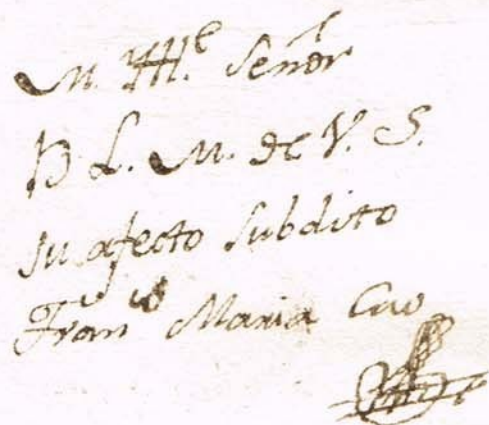 M. Ill.e Señor
B L. M. de V. S.
su afecto Subdito
Fran.co Maria Cao